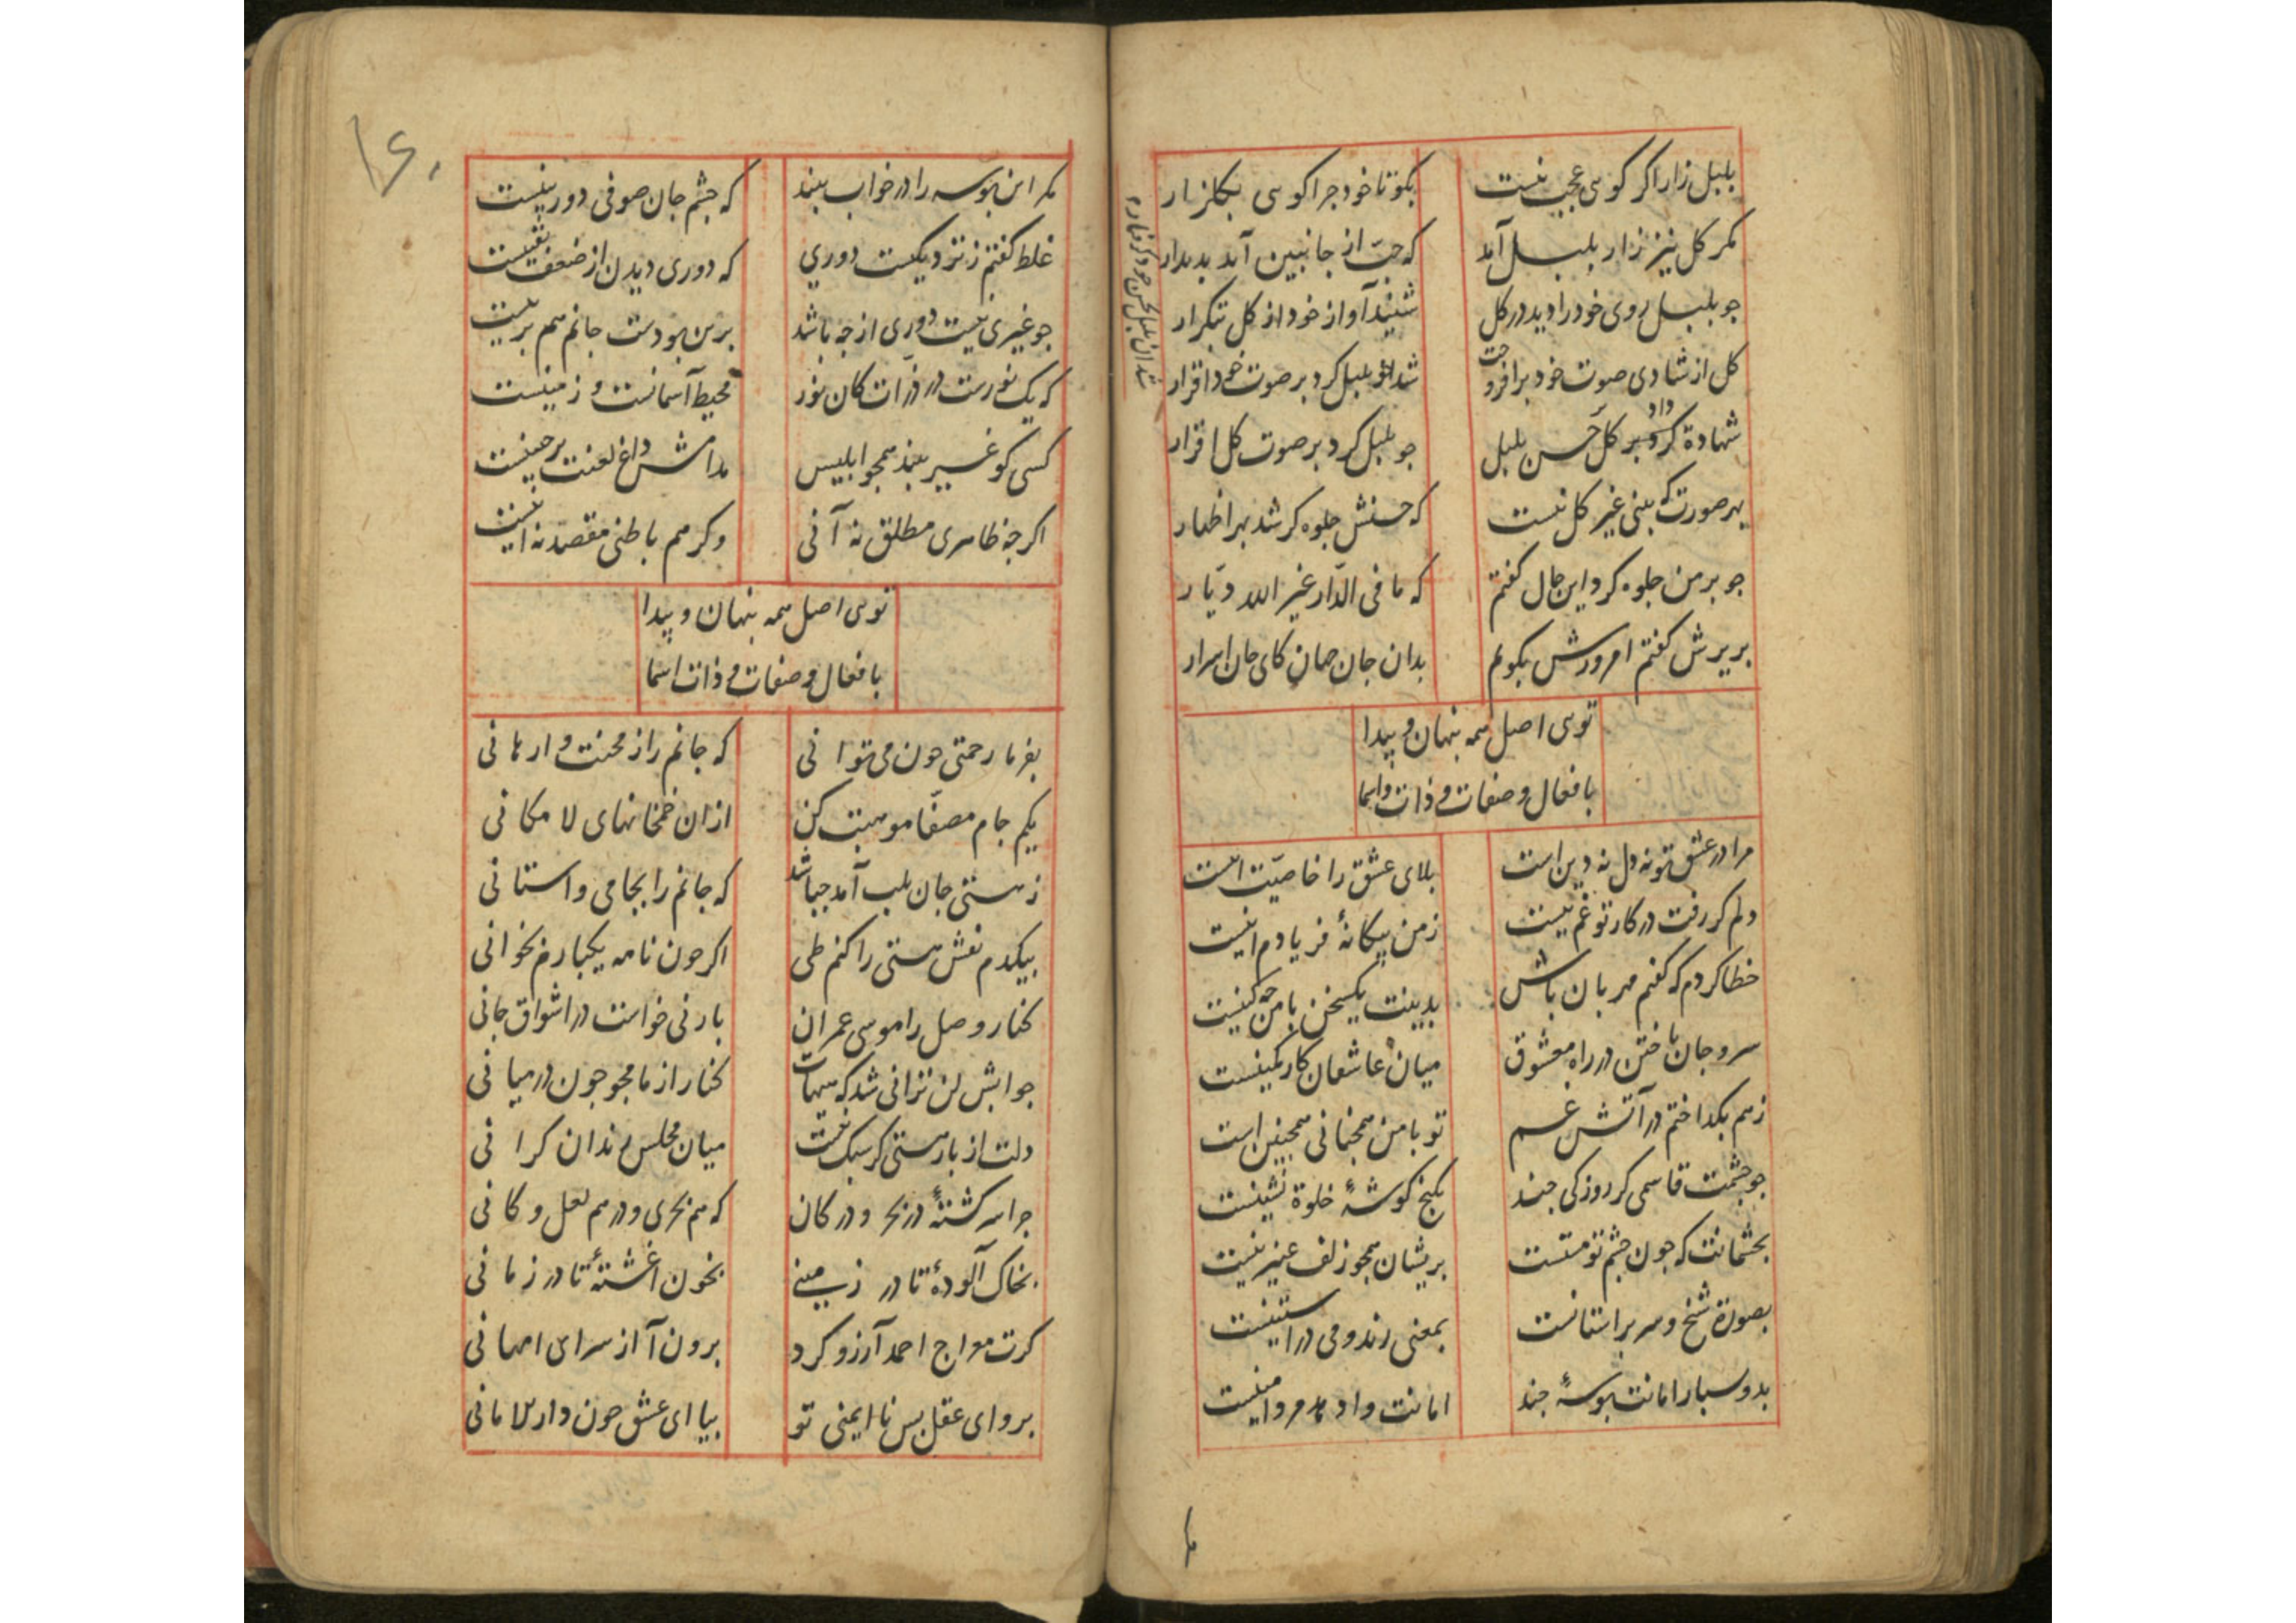 بلبل زار اکر کوسی عجب نیست
بکو تا خود جرا کوسی بکلزار
مکر کل نیز زار بلبل آمد
که حبّ از جانبین آید بدیدار
جو بلبل روی خود را دید در کل
شنید آواز خود از کل بتکرار
کل از شادی صوت خود برافروخت
شد بلبل کرد بر صوت خود اقرار
شهادة کرد داد بر کل حسن بلبل
جو بلبل کرد بر صوت کل اقرار
بهر صورت که بینی غیر کل نیست
که حسنش جلوه کر شد بهر اظهار
جو بر من جلوه کرد این حال کفتم
که ما فی الدّار غیر الله دیّار
بریرش کفتم امروزش بکویم
بدان جان جهان کای جان اسرار
توی اصل همه بنهان و پیدا
بافعال و صفات و ذات و اسما
مرا در عشق تو نه دل نه دین است
بلای عشق را خاصیّت اینست
دلم کر رفت در کار تو غم نیست
ز من بیکانهٔ فریادم اینست
خطا کردم که کفتم مهربان باش
بدینت یکسخن با من جه کینست
سر و جان باختن در راه معشوق
میان عاشقان کار کمینست
ز هم بکداختم در آتش غم
تو با من همجنانی همجنین است
جو جشمت قاسمی کر روزکی جند
بکنج کوشهٔ خلوة نشینست
بجشمانت که جون جشم تو مستست
بریشان همجو زلف عنبرینست
بصورة شیخ و سر بر استانست
بمعنی رند و می در استینست
بدو سبار امانت بوسهٔ جند
امانت داد مرد امینست
که این بوسه را در خواب بیند
که جشم جان صوفی دوربینست
غلط کفتم ز نزدیکیست دوری
که دوری دیدن از ضعف یقینست
جو غیری نیست دوری از جه باشد
برین بودست جانم هم برینست
که یک نورست در ذرّات کان نور
محیط آسمانست و زمینست
کسی کو غیر بیند همجو ابلیس
مدامش داغ لعنت بر جبینست
اکر جه ظاهری مطلق نه آنی
وکر هم باطنی مقصد نه اینست
توی اصل همه بنهان و پیدا
بافعال و صفات و ذات اسما
بفرما رحمتی جون می توانی
که جانم را ز محنت وارهانی
یکیم جام مصفّا موهبت کن
از ان خمخانهای لامکانی
ز هستی جان بلب آمد جه باشد
که جانم را بجامی واستانی
بیکدم نقش هستی را کنم طی
اکر جون نامه یکبارم بخوانی
کنار وصل را موسی عمران
بارنی خواست در اشواق جانی
جوابش لن ترانی شد که هیهات
کنار از ما مجو جون در میانی
دلت از بار هستی کر سبک نیست
میان مجلس رندان کرانی
جرا سرکشتهٔ در بحر و در کان
که هم بحری و درهم لعل و کانی
بخاک آلودهٔ تا در زمینی
بخون اغشتهٔ تا در زمانی
کرت معراج احمد آرزو کرد
برون آ از سرای امهانی
برو ای عقل بس نا ایمنی تو
بیا ای عشق جون دار الامانی